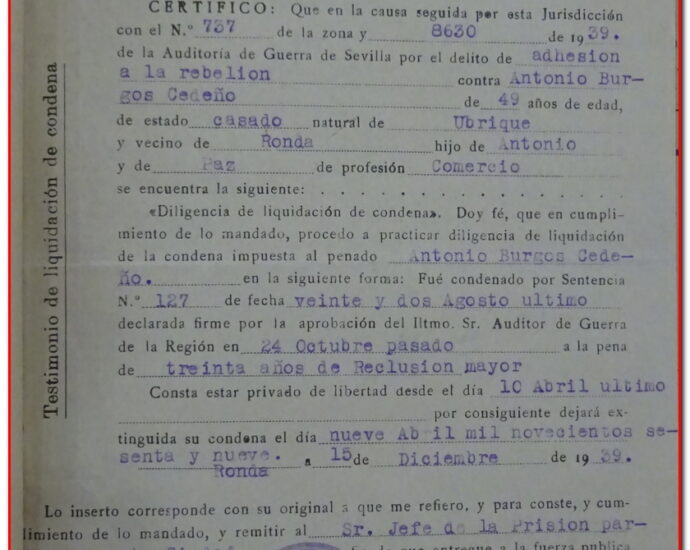 Testimonio de liquidación de condena
CERTIFICO: Que en la causa seguida por esta Jurisdicción
con el N.º 737 de la zona y 8630 de 1939.
de la Auditoría de Guerra de Sevilla por el delito de adhesion
a la rebelion contra Antonio Bur-
gos Cedeño de 49 años de edad,
de estado casado natural de Ubrique
y vecino de Ronda hijo de Antonio
y de Paz de profesión Comercio
se encuentra la siguiente:
«Diligencia de liquidación de condena». Doy fé, que en cumpli-
miento de lo mandado, procedo a practicar diligencia de liquidación
de la condena impuesta al penado Antonio Burgos Cede-
ño. en la siguiente forma: Fué condenado por Sentencia
N.º 127 de fecha veinte y dos Agosto ultimo
declarada firme por la aprobación del Iltmo. Sr. Auditor de Guerra
de la Región en 24 Octubre pasado a la pena
de treinta años de Reclusion mayor
Consta estar privado de libertad desde el día 10 Abril ultimo
por consiguiente dejará ex-
tinguida su condena el día nueve Abril mil novecientos se-
senta y nueve.
Ronda a 15 de Diciembre de 1939.
Lo inserto corresponde con su original a que me refiero, y para conste, y cum-
limiento de lo mandado, y remitir al Sr. Jefe de la Prision par-
que entregue a la fuerza publica